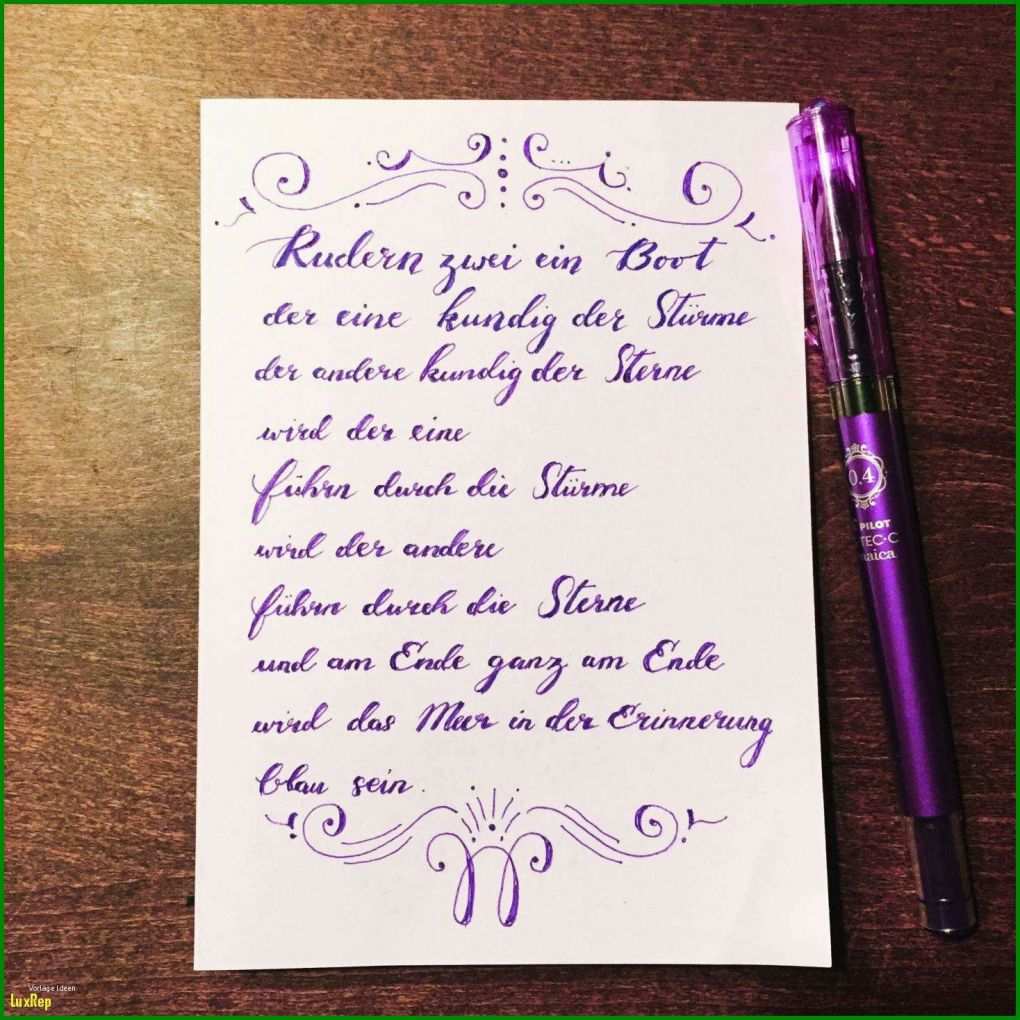 Rudern zwei ein Boot
der eine kundig der Stürme
der andere kundig der Sterne
wird der eine
führn durch die Stürme
wird der andere
führn durch die Sterne
und am Ende ganz am Ende
wird das Meer in der Erinnerung
blau sein.
0.4
PILOT
TEC-C
aica
Vorlage Ideen
LuxRep